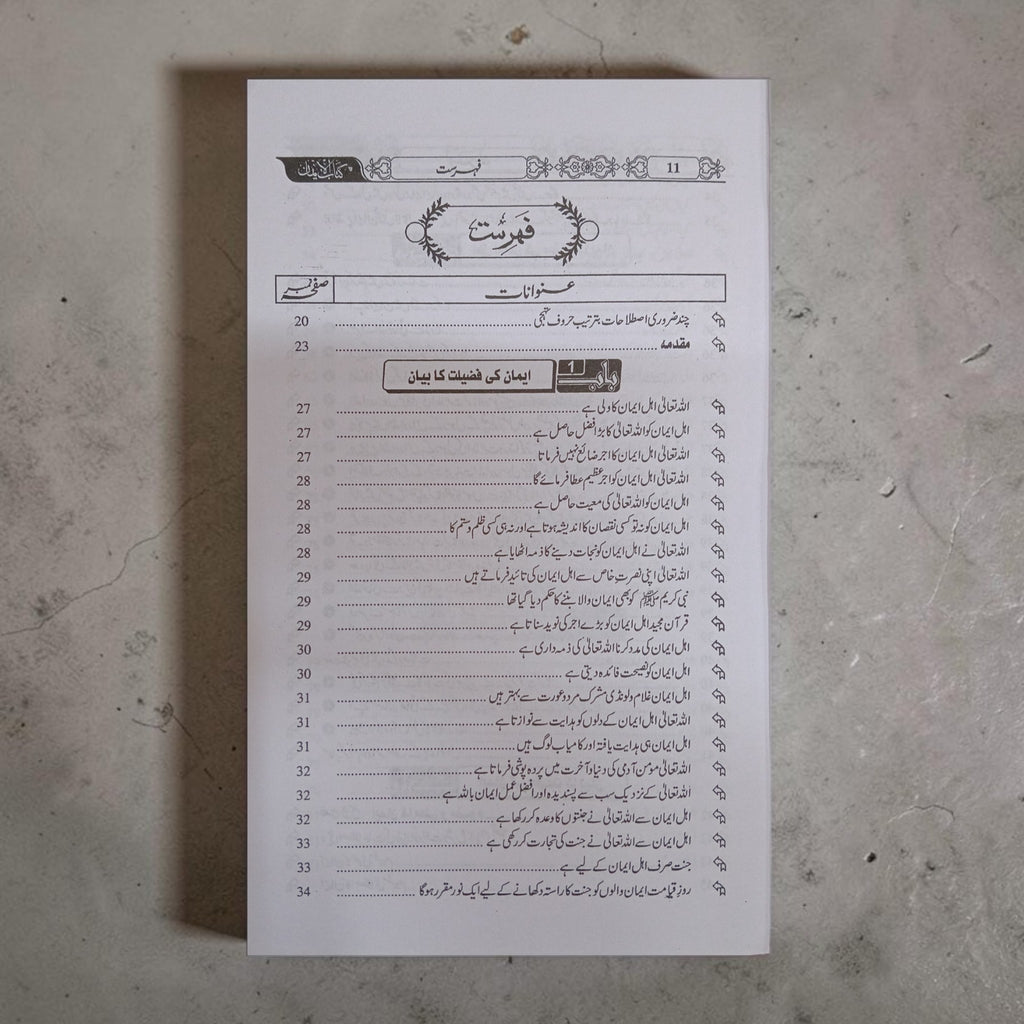 کتاب الایمان فہرست 11
فہرست
عنوانات صفحہ نمبر
چند ضروری اصطلاحات بترتیب حروف تہجی 20
مقدمہ 23
باب 1 ایمان کی فضیلت کا بیان
اللہ تعالیٰ اہل ایمان کا ولی ہے 27
اہل ایمان کو اللہ تعالیٰ کا بڑا فضل حاصل ہے 27
اللہ تعالیٰ اہل ایمان کا اجر ضائع نہیں فرماتا 27
اللہ تعالیٰ اہل ایمان کو اجر عظیم عطا فرمائے گا 28
اہل ایمان کو اللہ تعالیٰ کی معیت حاصل ہے 28
اہل ایمان کو نہ تو کسی نقصان کا اندیشہ ہوتا ہے اور نہ ہی کسی ظلم و ستم کا 28
اللہ تعالیٰ نے اہل ایمان کو نجات دینے کا ذمہ اٹھایا ہے 28
اللہ تعالیٰ اپنی نصرتِ خاص سے اہل ایمان کی تائید فرماتے ہیں 29
نبی کریم ﷺ کو بھی ایمان والا بننے کا حکم دیا گیا تھا 29
قرآن مجید اہل ایمان کو بڑے اجر کی نوید سناتا ہے 29
اہل ایمان کی مدد کرنا اللہ تعالیٰ کی ذمہ داری ہے 30
اہل ایمان کو نصیحت فائدہ دیتی ہے 30
اہل ایمان غلام و لونڈی مشرک مرد و عورت سے بہتر ہیں 31
اللہ تعالیٰ اہل ایمان کے دلوں کو ہدایت سے نوازتا ہے 31
اہل ایمان ہی ہدایت یافتہ اور کامیاب لوگ ہیں 31
اللہ تعالیٰ مؤمن آدمی کی دنیا و آخرت میں پردہ پوشی فرماتا ہے 32
اللہ تعالیٰ کے نزدیک سب سے پسندیدہ اور افضل عمل ایمان باللہ ہے 32
اہل ایمان سے اللہ تعالیٰ نے جنتوں کا وعدہ کر رکھا ہے 32
اہل ایمان سے اللہ تعالیٰ نے جنت کی تجارت کر رکھی ہے 33
جنت صرف اہل ایمان کے لیے ہے 33
روزِ قیامت ایمان والوں کو جنت کا راستہ دکھانے کے لیے ایک نور مقرر ہوگا 34